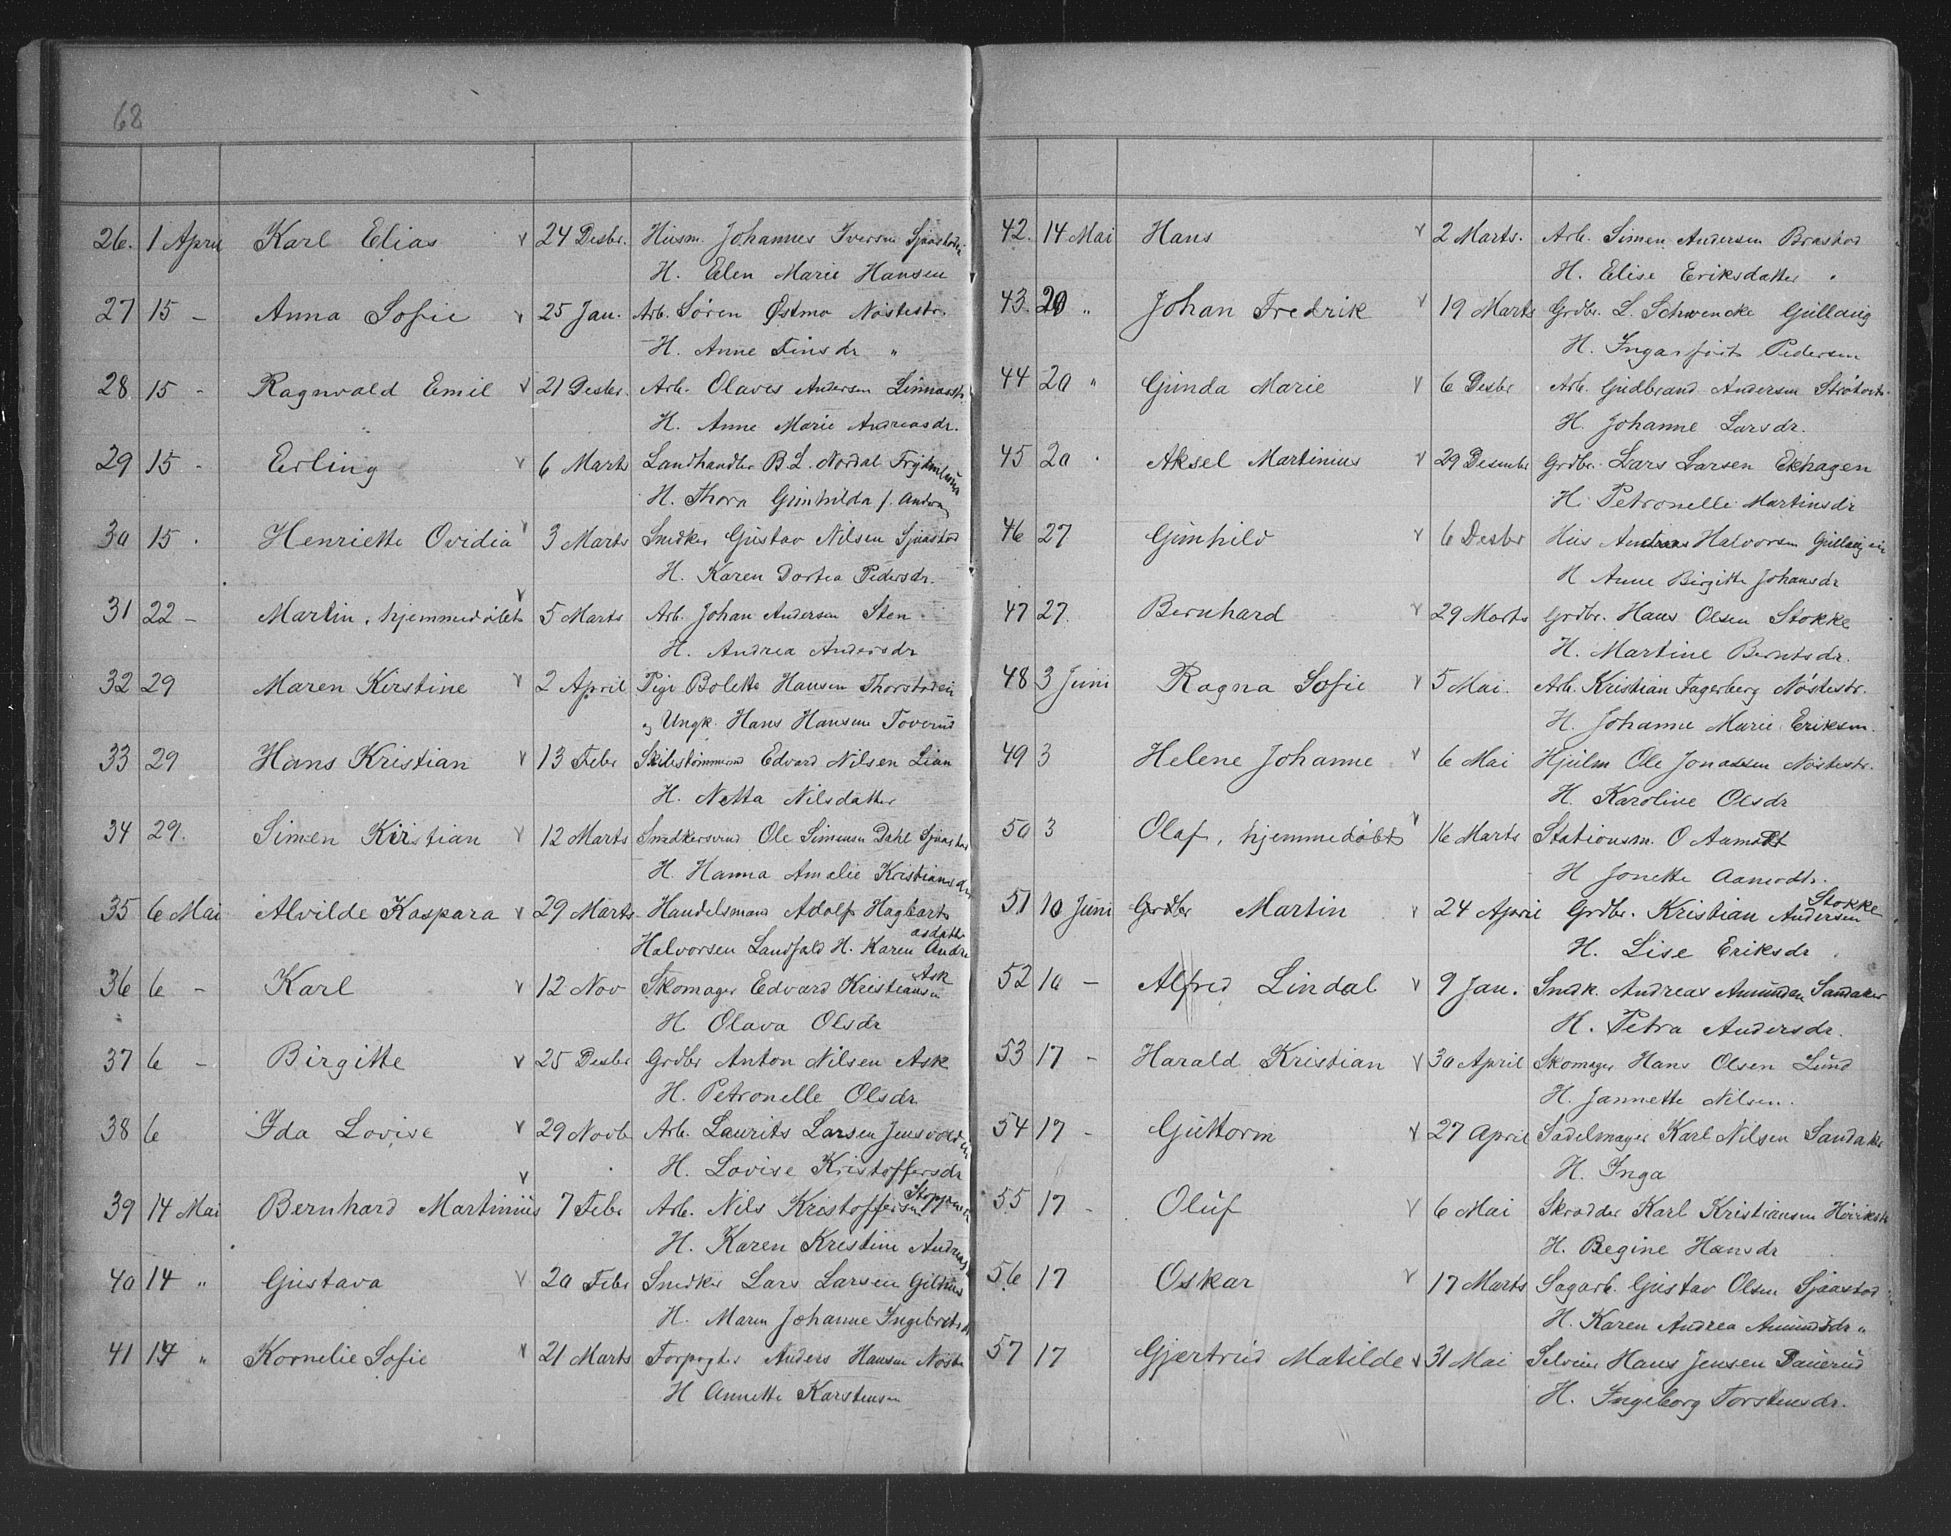 68
26. 1 April Karl Elias v 24 Desbr. Husm. Johannes Iversen Sjaastadei
H. Elen Marie Hansen
27 15 – Anna Sofie v 25 Jan. Arb. Søren Østmo Nøstestr.
H. Anne Finsdr "
28 15 - Ragnvald Emil v 21 Desbr. Arb. Olaves Andersen Linnesstr.
H. Anne Marie Andreasdr.
29 15 - Erling v 6 Marts Landhandler B. L. Nordal
H. Thora Gunhilda f.
30 15 . Henriette Ovidia v 3 Marts Snedker Gustav Nilsen Sjaastad
H. Karen Dortea Pedersdr.
31 22 – Martin, hjemmedøbt v 5 Marts Arb. Johan Andersen Sten
H. Andrea Andersdr
32 29 Maren Kirstine v 2 April Pige Bolette Hansen Thorstadei
og Ungk. Hans Hansen Toverud
33 29 Hans Kristian v 13 Febr Skibstømmerm Edvard Nilsen Lian
H. Netta Nilsdatter
34 29. Simen Kristian v 12 Marts Snedkersvend Ole Simensen Dahl Sjaastad
H. Hanna Amalie Kristiansdr
35 6 Mai Alvilde Kaspara v 29 Marts Handelsmand Adolf Hagbart
Halvorsen Landfald H. Karen Andreasdatter
36 6 – Karl v 12 Nov Skomager Edvard Kristiansen Ask
H. Olava Olsdr
37 6 – Birgitte v 25 Desbr Grdbr Anton Nilsen Ask
H. Petronelle Olsdr
38 6 Ida Lovise v 29 Novb Arb. Laurits Larsen Jensvoldei
H. Lovise Kristoffersdr
39 14 Mai Bernhard Martinius v 7 Febr Arb. Nils Kristoffersen Stoppenei
H. Karen Kristine Andreasdr
40 14 " Gustava v 20 Febr Snedker Lars Larsen Gilhus
H. Maren Johanne Ingebretsdr
41 14 " Kornelie Sofie v 21 Marts Forpagter Anders Hansen Nøste
H Annette Karstensen
42. 14 Mai Hans v 2 Marts. Arb. Simen Andersen Brastad
H. Elise Eriksdatter "
43. 20 " Johan Fredrik v 19 Marts Grdbr. L. Schwencke Gullaug
H. Pedersen
44 20 " Gunda Marie v 6 Desbr Arb. Gudbrand Andersen
H. Johanne Larsdr.
45 20 " Aksel Martinius v 29 Desember Grdbr. Lars Larsen Ekhagen
H. Petronelle Martinsdr
46 27 Gunhild v 6 Desbr Hus Andreas Halvorsen Gullaugei
H Anne Birgitte Johansdr
47 27. Bernhard v 29 Marts Grdbr. Hans Olsen Stokke
H. Martine Berntsdr.
48 3 Juni Ragna Sofie v 5 Mai. Arb. Kristian Fagerberg Nøstestr.
H. Johanne Marie Eriksen.
49 3 Helene Johanne v 6 Mai Hjulm Ole Jonassen Nøstestr.
H. Karoline Olsdr
50 3 Olaf, hjemmedøbt v 16 Marts Stationsm. O Aamodt
H Jonette Aamodt.
51 10 Juni Grdbr Martin v 24 April Grdbr. Kristian Andersen Stokke
H. Lise Eriksdr
52 10 – Alfred Lindal v 9 Jan. Snedk. Andreas Amundsen Sandaker
H. Petra Andersdr.
53 17 – Harald Kristian v 30 April Skomager Hans Olsen Lund
H. Jannette Nilsen.
54 17 - Guttorm v 27 April Sadelmager Karl Nilsen Sandaker
H. Inga
55 17 - Oluf v 6 Mai Skrædder Karl Kristiansen
H. Regine Hansdr
56 17 Oskar v 17 Marts Sagarb. Gustav Olsen Sjaastad
H. Karen Andrea Amundsdr "
57 17 Gjertrud Matilde v 31 Mai Selveier Hans Jensen Dauerud
H. Ingeborg Torstensdr.